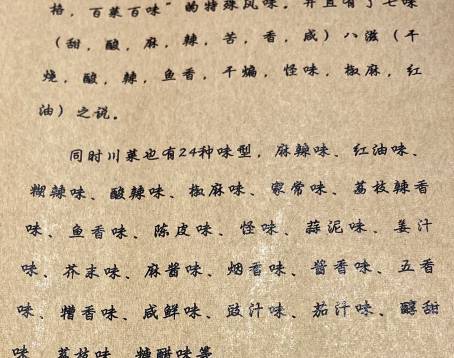 格，百菜百味"的特殊风味。并且有了七味
（甜，酸，麻，辣，苦，香，咸）八滋（干
烧，酸，辣，鱼香，干煸，怪味，椒麻，红
油）之说。
同时川菜也有24种味型，麻辣味、红油味、
糊辣味、酸辣味、椒麻味、家常味、荔枝辣香
味、鱼香味、陈皮味、怪味、蒜泥味、姜汁
味、芥末味、麻酱味、烟香味、酱香味、五香
味、糟香味、咸鲜味、豉汁味、茄汁味、醇甜
味、荔枝味、糖醋味等